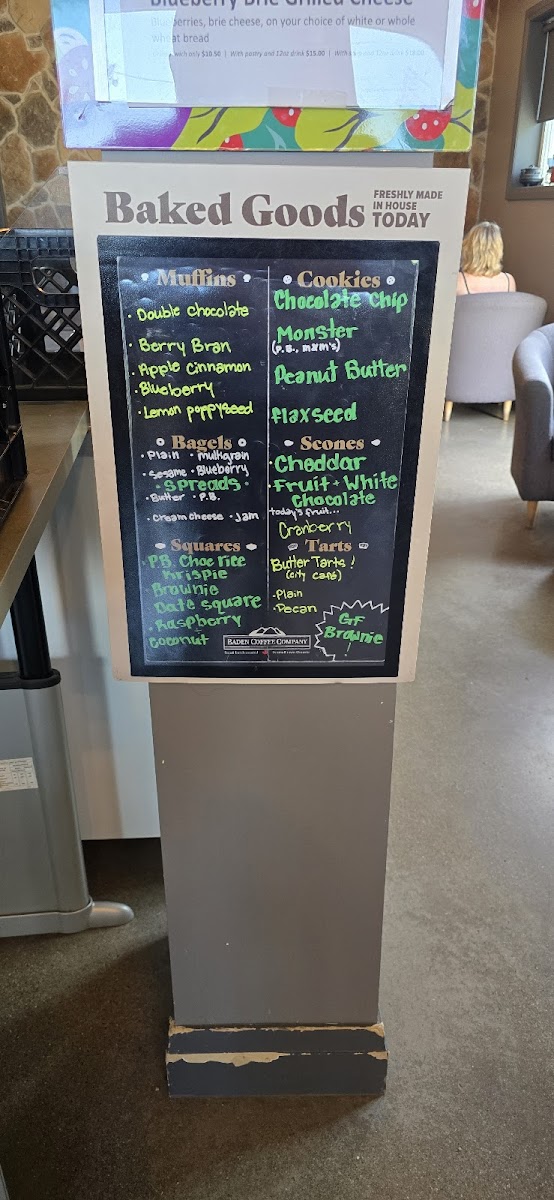 Blueberry Brie Grilled Cheese
Blueberries, brie cheese, on your choice of white or whole
wheat bread
Baked Goods
FRESHLY MADE
IN HOUSE
TODAY
Muffins
· Double chocolate
· Berry Bran
· Apple Cinnamon
· Blueberry
· Lemon poppyseed
Bagels
· Plain · multigrain
· Sesame · Blueberry
· SPreads ·
· Butter · P.B.
· cream cheese · Jam
Squares
· P.B. Choc rice
Krispie
Brownie
Date square
· Raspberry
coconut
Cookies
Chocolate Chip
Monster
(P.B., m&m's)
Peanut Butter
flaxseed
Scones
· Cheddar
· Fruit + White
Chocolate
today's fruit...
Cranberry
Tarts
Butter Tarts!
(city cafe)
· Plain
· Pecan
GF
Brownie
!
BADEN COFFEE COMPANY